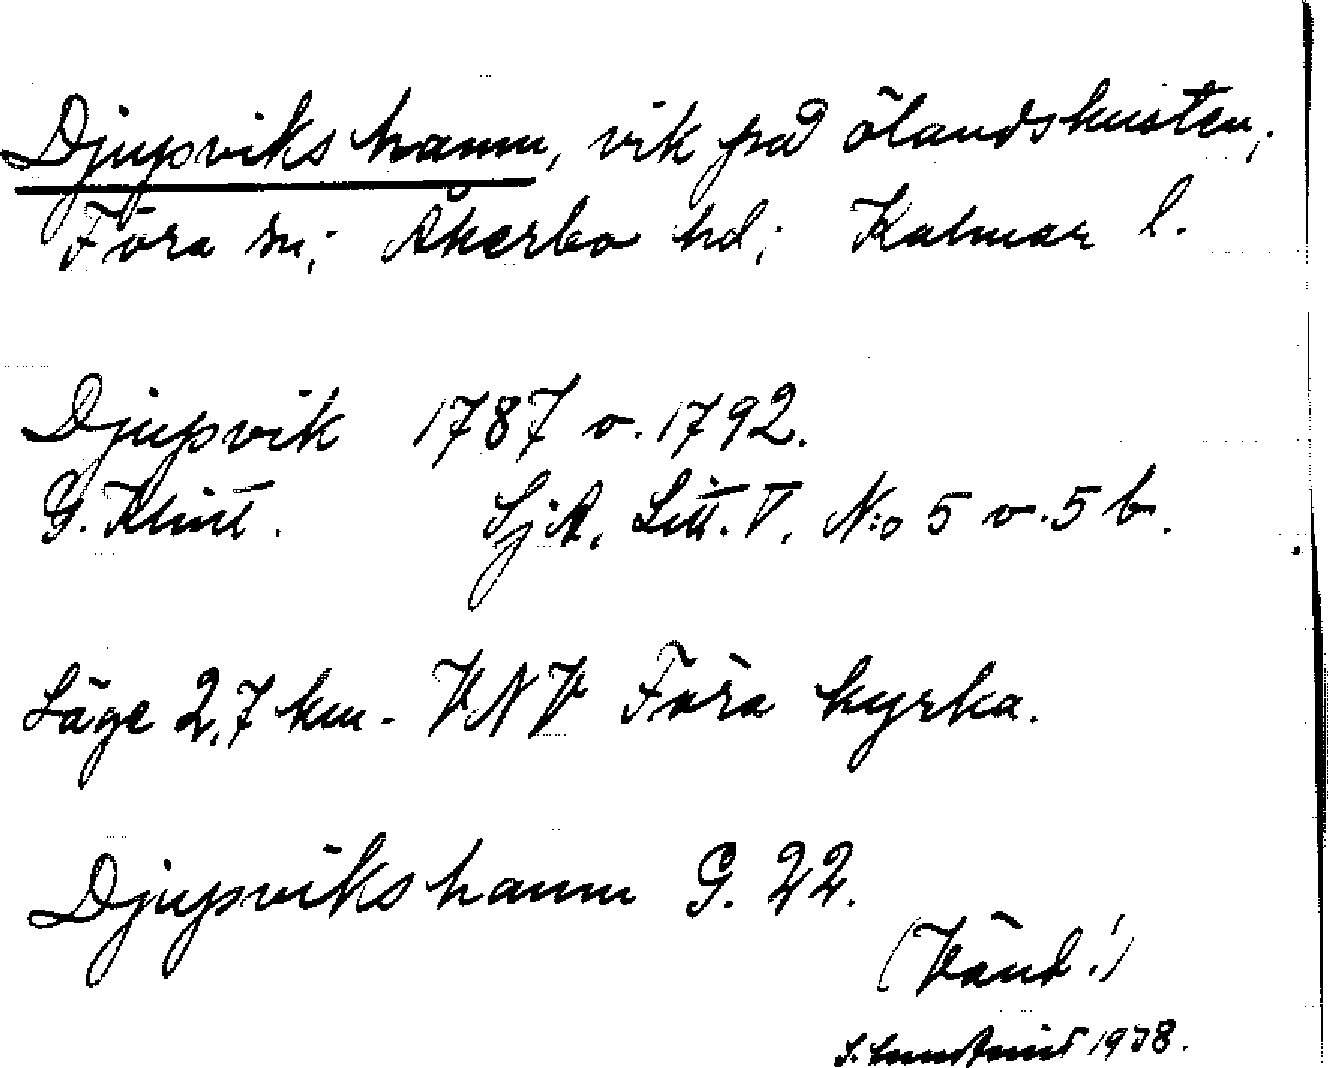 Djupvikshamn, vik på ölandskusten,
Föra sn; Åkerbo hd; Kalmar l.
Djupvik 1787 o. 1792.
G. Klint. SjA. Litt. V. N:o 5 o. 5 b.
Läge 2,7 km. VNV Föra kyrka.
Djupvikshamn G. 22.
(Vänd!)
1938.